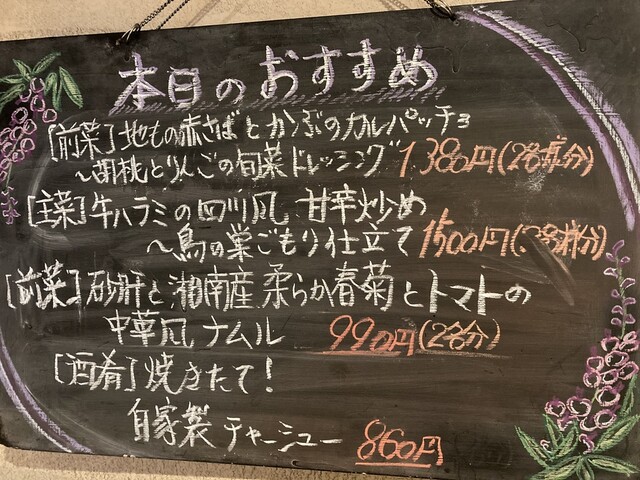 本日のおすすめ
[前菜]地もの赤さばとかぶのカルパッチョ
～胡桃とりんごの旬菜ドレッシング 1380円(2名様分)
[主菜]牛ハラミの四川風 甘辛炒め
～鳥の巣ごもり仕立て 1500円(2名様分)
[前菜]砂肝と湘南産柔らか春菊とトマトの
中華風ナムル 990円(2名分)
[酒肴]焼きたて!
自家製チャーシュー 860円